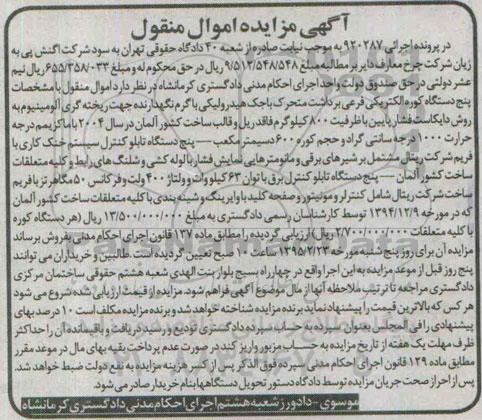 آگهی مزایده اموال منقول
در پرونده اجرائی ۹۲۰۲۸۷ به موجب نیابت صادره از شعبه ۴۰ دادگاه حقوقی تهران به سود شرکت اگنش پی به
زیان شرکت چرخ معارف دایر بر مطالبه مبلغ ۹/۵۱۲/۵۴۸/۵۴۸ ریال در حق محکوم له و مبلغ ۶۵۵/۳۵۸/۰۳۳ ریال نیم
عشر دولتی در حق صندوق دولت واحد اجرای احکام مدنی دادگستری کرمانشاه در نظر دارد اموال منقول با مشخصات
پنج دستگاه کوره الکتریکی فرعی برداشت متحرک با جک هیدرولیکی با گرم نگهدارنده جهت ریخته گری آلومینیوم به
روش دایکاست فشار پایین با ظرفیت ۸۰۰ کیلوگرم فاقد ریل و قالب ساخت کشور آلمان در سال ۲۰۰۴ با ماکزیمم درجه
حرارت ۱۰۰۰ درجه سانتی گراد و حجم کوره ۶۰۰ دسیمتر مکعب – پنج دستگاه تابلو کنترل سیستم خنک کاری با
فریم شرکت ریتال مشتمل بر شیرهای برقی و مانومترهایی نمایش فشار با لوله کشی و شلنگ های رابط و کلیه متعلقات
ساخت کشور آلمان – پنج دستگاه تابلو کنترل برق با توان ۶۳ کیلووات و ولتاژ ۴۰۰ ولت و فرکانس ۵۰ مگاهرتز با فریم
ساخت شرکت ریتال شامل کنترلر و مونیتور و صفحه کلید با وایرینگ و شینه بندی با کلیه متعلقات ساخت کشور آلمان
که در مورخه ۱۳۹۴/۱۲/۹ توسط کارشناسان رسمی دادگستری به مبلغ ۱۳/۵۰۰/۰۰۰/۰۰۰ ریال (هر دستگاه کوره
با کلیه متعلقات ۲/۷۰۰/۰۰۰/۰۰۰ ریال) ارزیابی گردیده را مطابق ماده ۱۳۷ قانون اجرای احکام مدنی بفروش برساند
مزایده آن برای روز پنج شنبه مورخه ۱۳۹۵/۲/۲۳ ساعت ۱۰ صبح تعیین گردیده است طالبین و خریداران می توانند
پنج روز قبل از موعد مزایده به این اجرا واقع در چهارراه بسیج بلوار بنت الهدی شعبه هشتم حقوقی ساختمان مرکزی
دادگستری مراجعه تا ترتیب ملاحظه آنها از مال موضوع آگهی فراهم شود. مزایده از قیمت ارزیابی شده شروع می شود
هر کس که بالاترین قیمت را پیشنهاد نماید برنده مزایده شناخته خواهد شد و برنده مزایده مکلف است ۱۰ درصد بهای
پیشنهادی را فی المجلس بعنوان سپرده به حساب سپرده دادگستری تودیع و رسید دریافت و باقیمانده آن را حداکثر
ظرف مهلت یک هفته از تاریخ مزایده به حساب مزبور واریز کند در صورت عدم پرداخت بقیه بهای مال در موعد مقرر
مطابق ماده ۱۲۹ قانون اجرای احکام مدنی سپرده فوق الذکر پس از کسر هزینه مزایده به نفع دولت ضبط خواهد شد.
پس از احراز صحت جریان مزایده توسط دادگاه دستور تحویل دستگاهها بنام خریدار صادر می شود.
موسوی – دادورز شعبه هشتم اجرای احکام مدنی دادگستری کرمانشاه